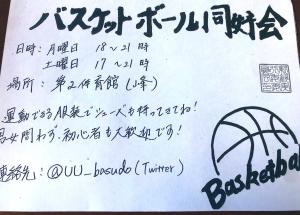 バスケットボール同好会
日時：月曜日 18〜21時
土曜日 17〜21時
場所：第2体育館(小峰)
運動できる服装でシューズも持ってきてね！
男女問わず、初心者も大歓迎です！
連絡先：@UU_basudo(Twitter)
Basketball